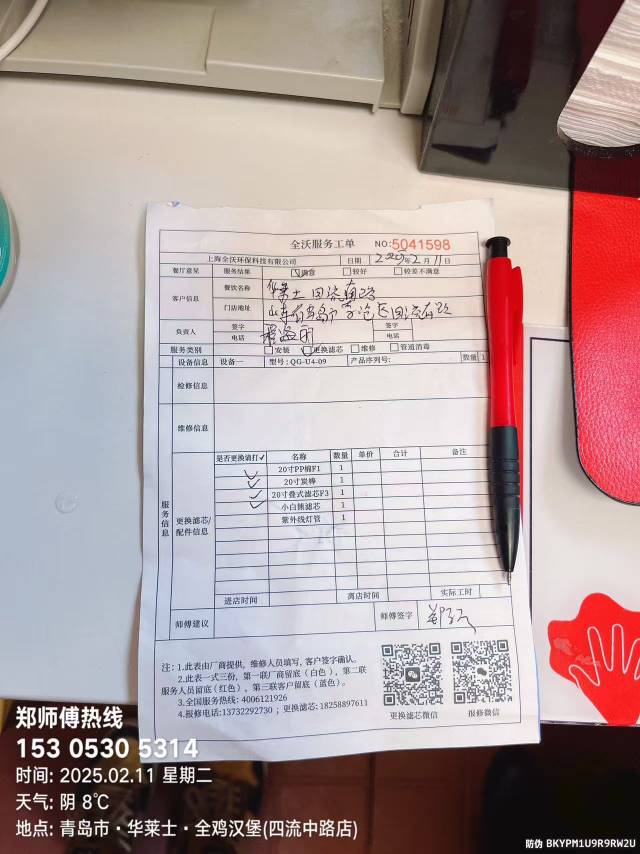 全沃服务工单 NO:5041598
上海全沃环保科技有限公司 日期 2025年2月11日
餐厅意见 服务结果 满意 较好 较差不满意
客户信息 餐饮名称 华莱士
门店地址
负责人 签字 电话 签字 电话
服务类别 安装 更换滤芯 维修 管道消毒
设备信息 设备一 型号:QG-U4-09 产品序列号: 数量 1
检修信息
维修信息
服务信息
更换滤芯/配件信息
是否更换请打✓ 名称 数量 单价 合计 备注
✓ 20寸PP棉F1 1
✓ 20寸炭棒 1
✓ 20寸叠式滤芯F3 1
✓ 小白熊滤芯 1
紫外线灯管 1
进店时间 离店时间 实际工时
师傅建议 师傅签字
注:1.此表由厂商提供,维修人员填写,客户签字确认。
2.此表一式三份,第一联厂商留底(白色),第二联
服务人员留底(红色),第三联客户留底(蓝色)。
3.全国服务热线:4006121926
4.报修电话:13732292730;更换滤芯:18258897611
更换滤芯微信 报修微信
郑师傅热线
153 0530 5314
时间: 2025.02.11 星期二
天气: 阴 8℃
地点: 青岛市·华莱士·全鸡汉堡(四流中路店)
防伪 BKYPM1U9R9RW2U